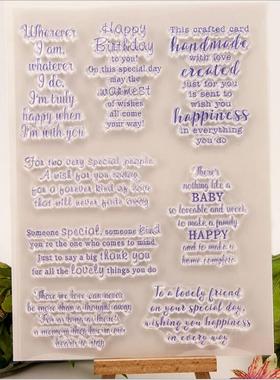 Wherever
I am,
whatever
I do,
I'm truly
happy when
I'm with you.
Happy
Birthday
to you!
On this special day
may the
warmest
of wishes
all come
your way!
This crafted card
handmade
with love
created
just for you
is sent to
wish you
happiness
in everything
you do
For two very special people,
A wish for you today
for a forever kind of love
that will never fade away
There's
nothing like a
BABY
so loveable and sweet,
to make a family
HAPPY
and to make a
home complete.
Someone special, someone kind
you're the one who comes to mind,
Just to say a big thank you
for all the lovely things you do
Those we love can never
be more than a thought away
For as long as there's
a memory they live in our
hearts to stay
To a lovely friend
on your special day,
wishing you happiness
in every way